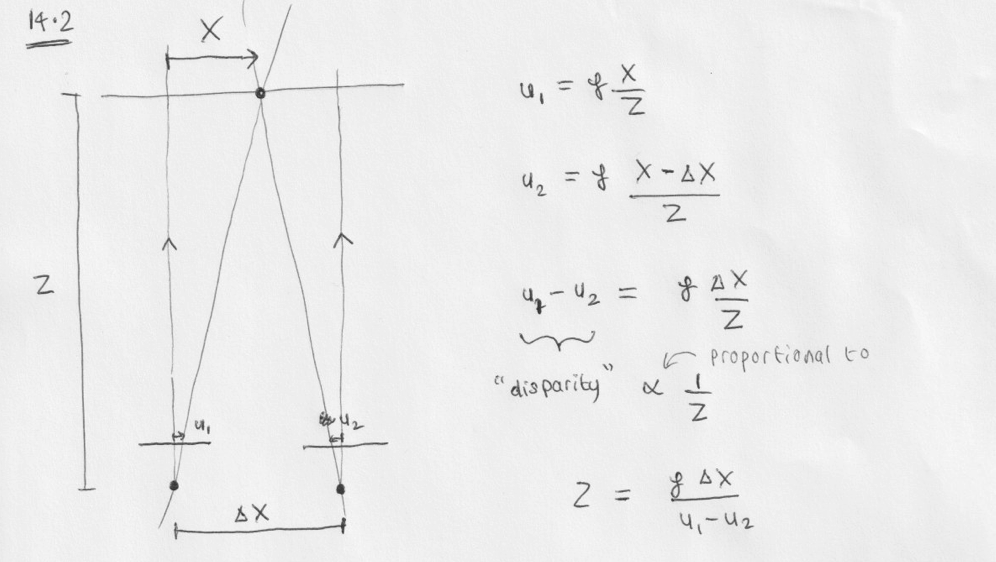 14.2
X
Z
u₁
u₂
ΔX
u₁ = f X/Z
u₂ = f (X - ΔX)/Z
u₁ - u₂ = f ΔX/Z
"disparity" ∝ 1/Z
proportional to
Z = f ΔX/(u₁ - u₂)